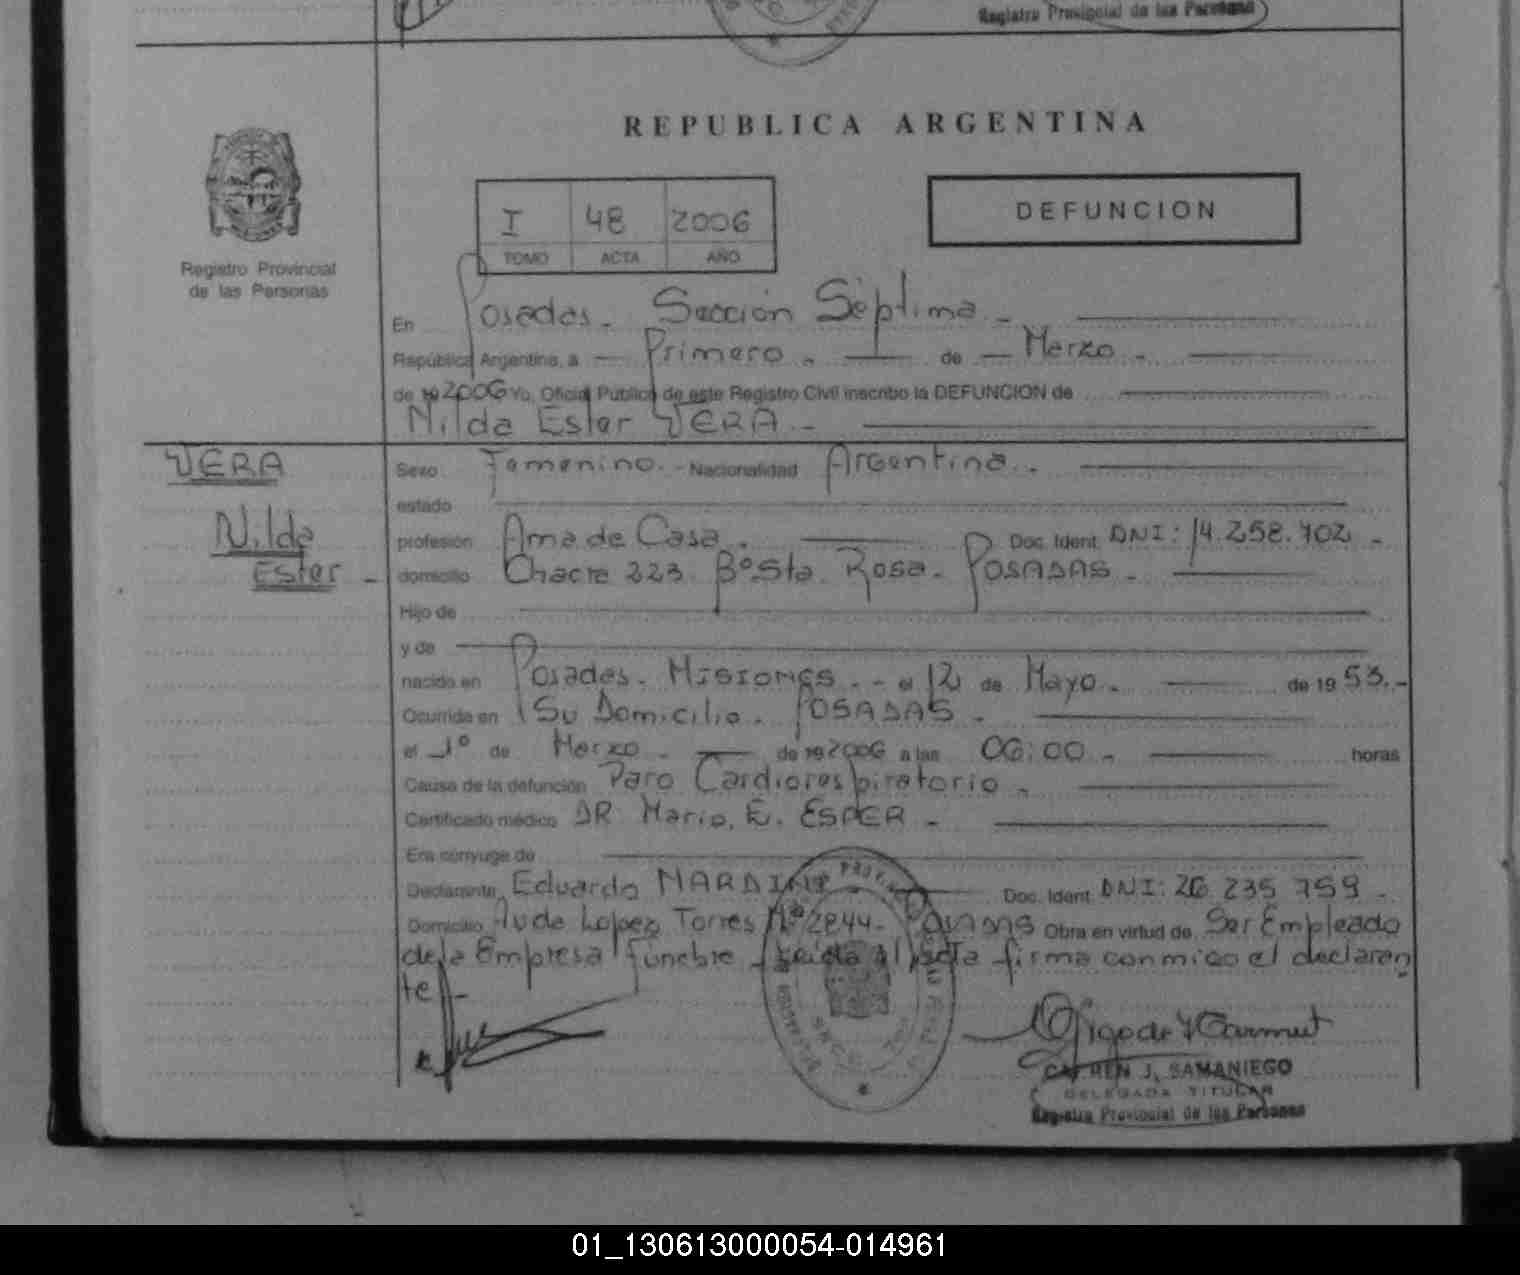 Registro Provincial de las Personas
REPUBLICA ARGENTINA
DEFUNCION
I 48 2006
TOMO ACTA AÑO
Registro Provincial
de las Personas
En Posadas. Sección Séptima.-
República Argentina, a Primero. de Marzo.
de 19 2006 Yo, Oficial Público de este Registro Civil inscribo la DEFUNCION de
Nilda Ester VERA.-
VERA
Nilda
Ester -
Sexo Femenino.- Nacionalidad Argentina.
estado
profesión Ama de Casa. Doc. Ident. DNI: 14.258.702 -
domicilio Chacra 223. Bº Sta. Rosa. POSADAS -
Hijo de
y de
nacido en Posadas. MISIONES. - el 12 de Mayo. de 19 53.-
Ocurrida en Su Domicilio. POSADAS -
el 1º de Marzo - de 19 2006 a las 06:00 - horas
Causa de la defunción Paro Cardiorespiratorio -
Certificado médico DR Mario. E. ESPER -
Era cónyuge de
Declarante Eduardo Doc. Ident. DNI: 26.235 759 -
Domicilio Av de Lopez Torres Nº 2844- POSADAS Obra en virtud de Ser Empleado
de la Empresa Funebre - Leida el acta firma conmigo el declaran
te -
CARMEN J. SAMANIEGO
DELEGADA TITULAR
Registro Provincial de las Personas
01_130613000054-014961